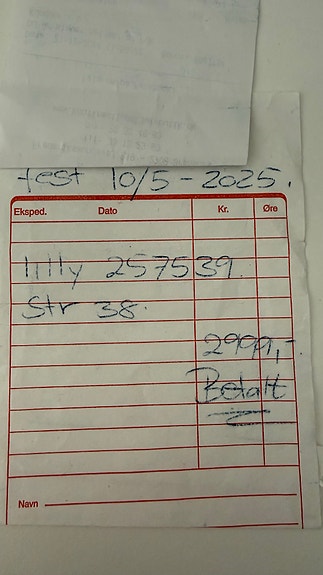 fest 10/5 - 2025.
Eksped. Dato Kr. Øre
lilly 257539.
Str 38.
2999,-
Betalt
Navn